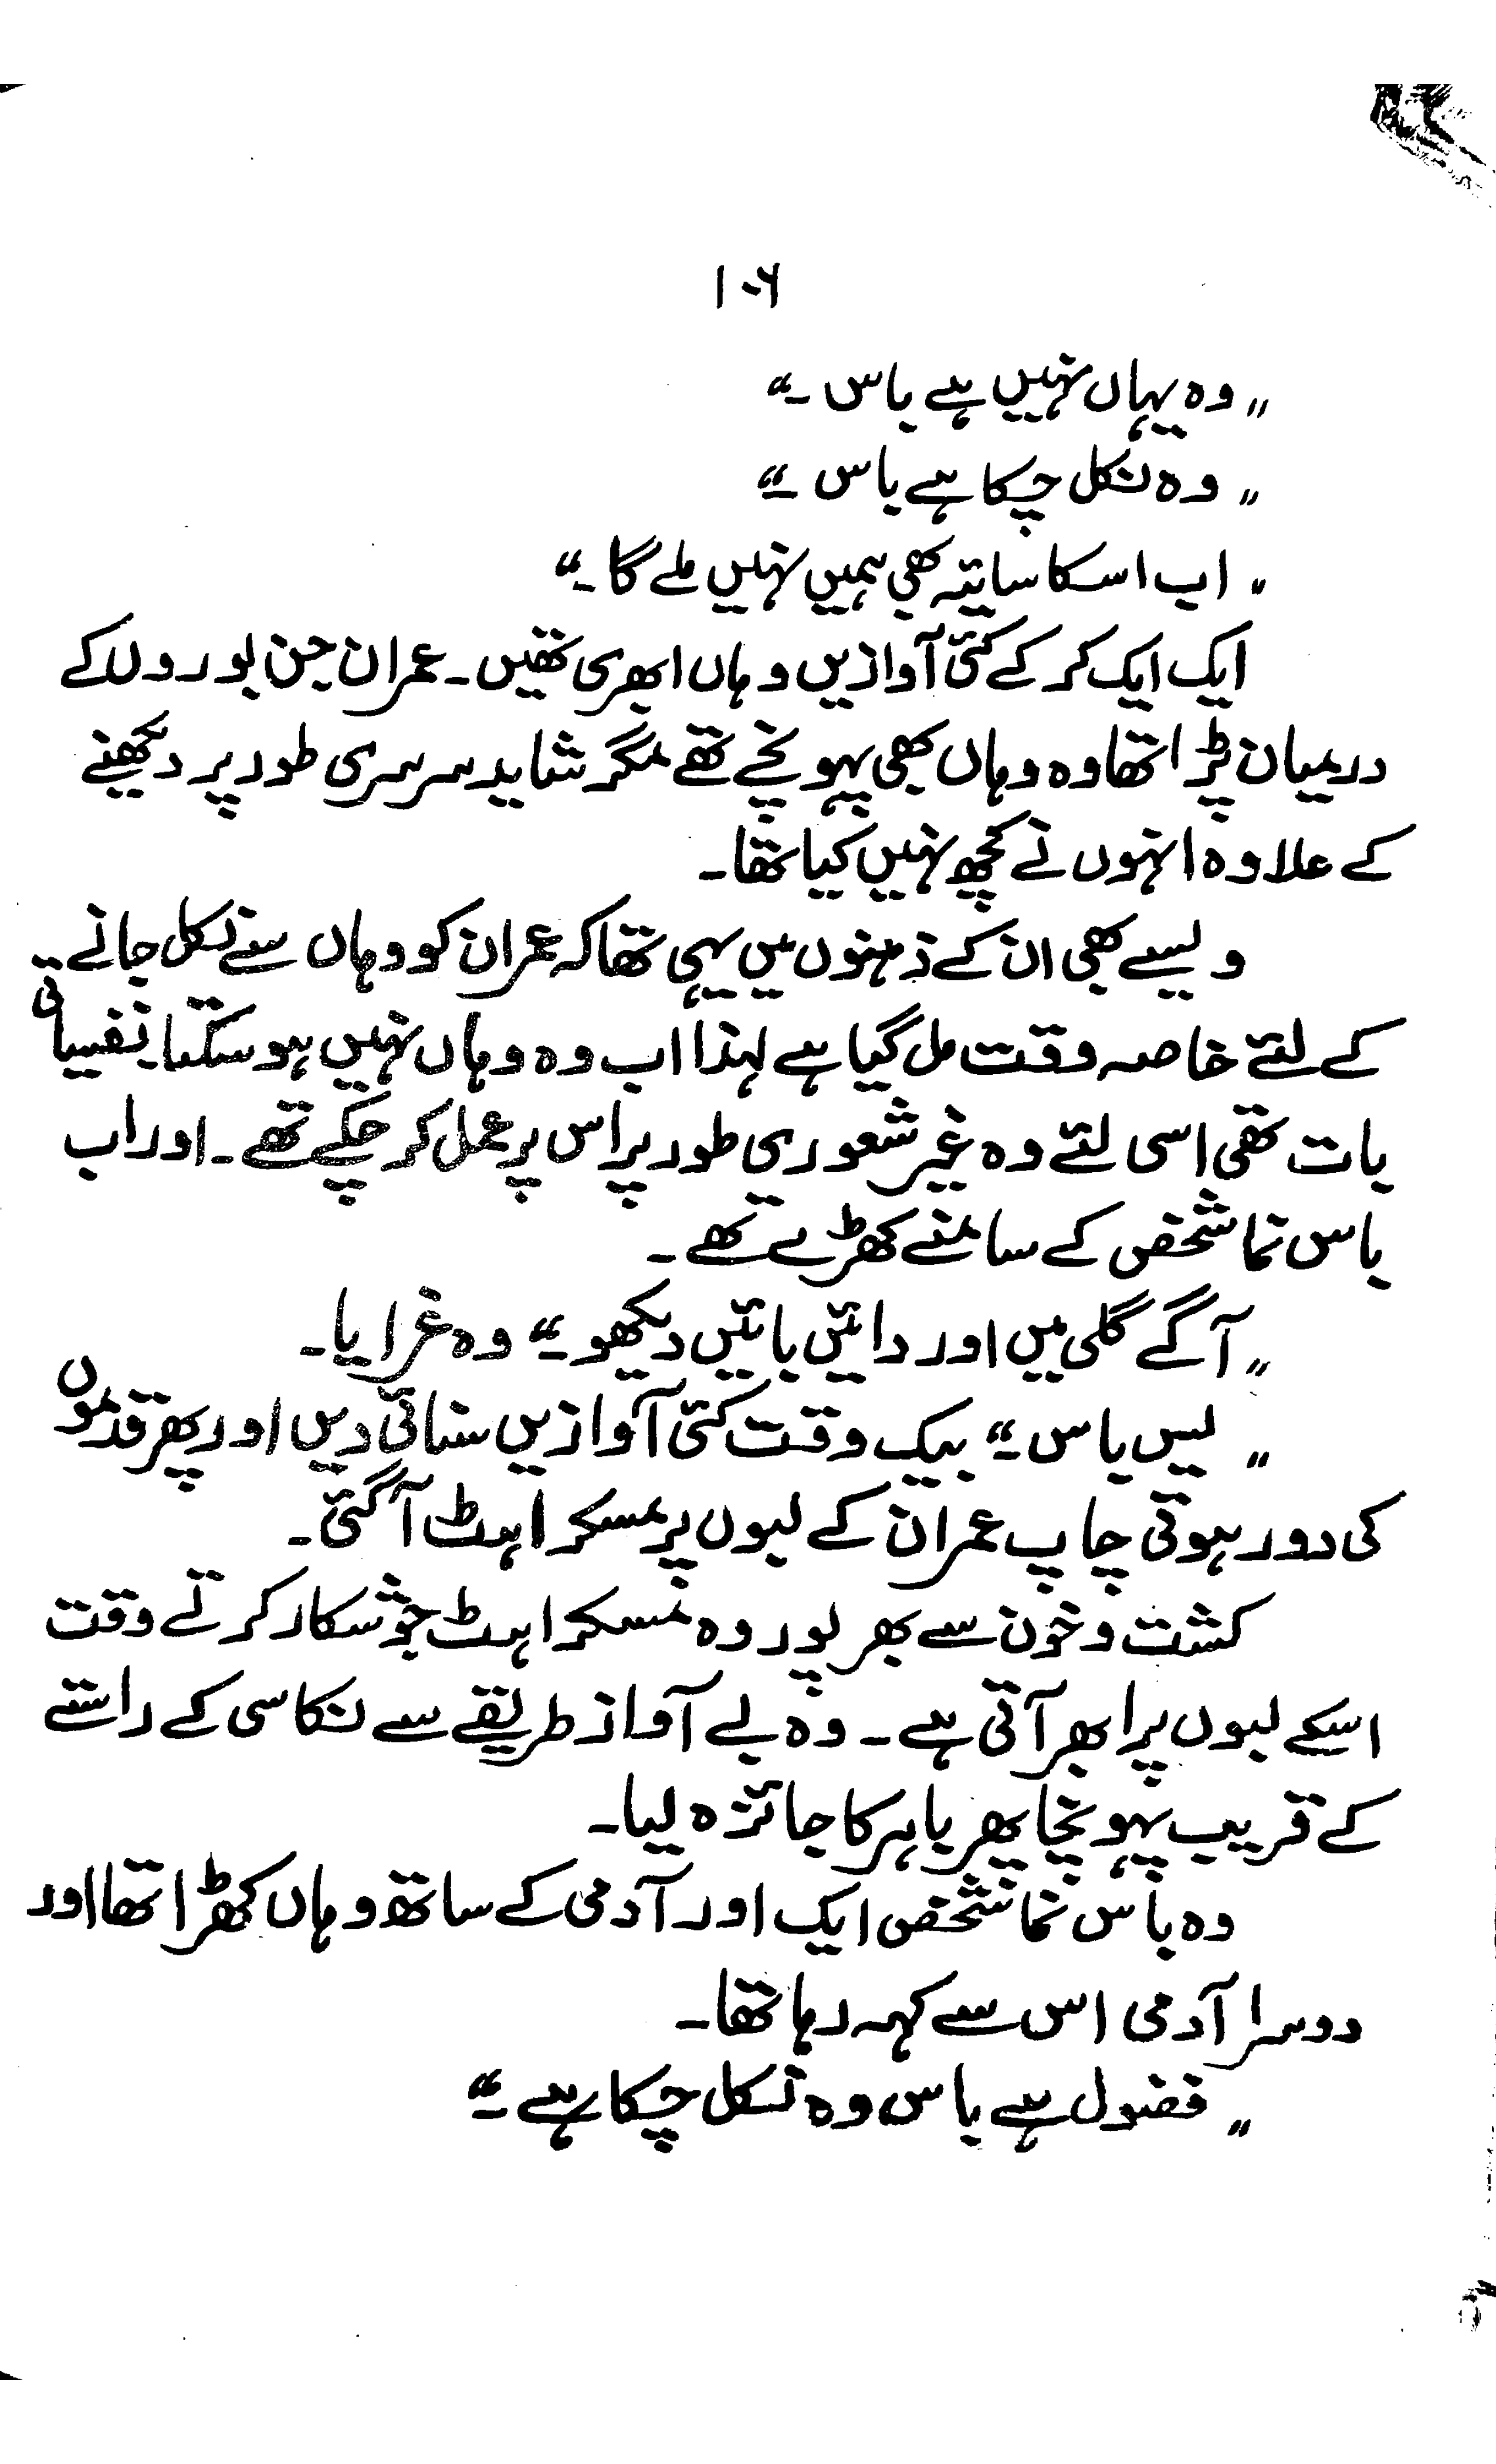 ۱۰۶
"وہ یہاں نہیں ہے باس۔"
"وہ نکل چکا ہے باس۔"
"اب اسکا سایہ بھی ہمیں نہیں ملے گا۔"
ایک ایک کر کے کئی آوازیں وہاں ابھری تھیں۔ عمران جن بوروں کے
درمیان پڑا تھا وہ وہاں بھی پہونچے تھے مگر شاید سرسری طور پر دیکھنے
کے علاوہ انہوں نے کچھ نہیں کیا تھا۔
ویسے بھی ان کے ذہنوں میں یہی تھا کہ عمران کو وہاں سے نکل جانے
کے لئے خاصہ وقت مل گیا ہے لہذا اب وہ وہاں نہیں ہو سکتا۔ نفسیاتی
بات تھی اسی لئے وہ غیر شعوری طور پر اس پر عمل کر چکے تھے۔ اور اب
باس نما شخص کے سامنے کھڑے تھے۔
"آگے گلی میں اور دائیں بائیں دیکھو۔" وہ غرایا۔
"یس باس۔" بیک وقت کئی آوازیں سنائی دیں اور پھر قدموں
کی دور ہوتی چاپ عمران کے لبوں پر مسکراہٹ آ گئی۔
کشت و خون سے بھرپور وہ مسکراہٹ جو شکار کرتے وقت
اسکے لبوں پر ابھر آتی ہے۔ وہ بے آواز طریقے سے نکاسی کے راستے
کے قریب پہونچا پھر باہر کا جائزہ لیا۔
وہ باس نما شخص ایک اور آدمی کے ساتھ وہاں کھڑا تھا اور
دوسرا آدمی اس سے کہہ رہا تھا۔
"فضول ہے باس وہ نکل چکا ہے۔"